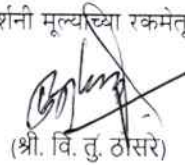 र्शनी मूल्याच्या रकमेतू
(श्री. वि. तु. ठोसरे)